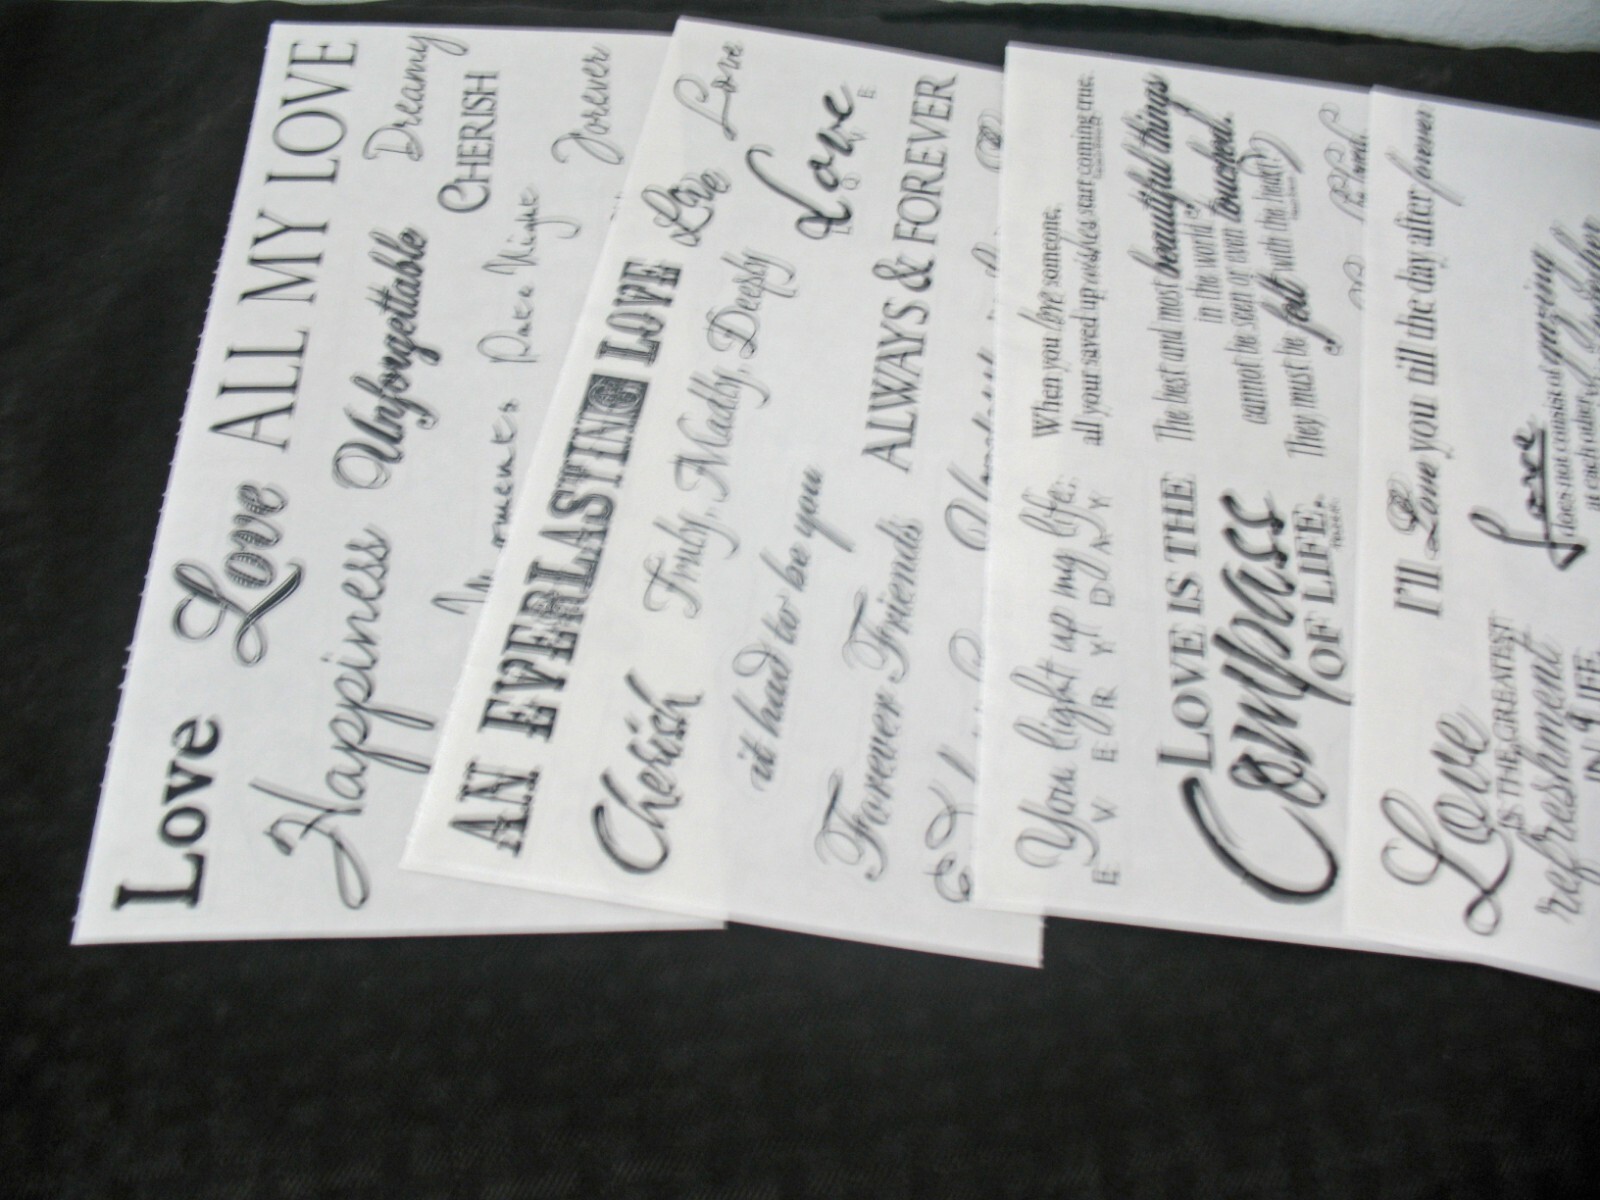 Love Love ALL MY LOVE
Happiness Unforgettable Dreamy
CHERISH
Date Night Forever
AN EVERLASTING LOVE Live Love
Cherish Truly, Madly, Deeply Love
it had to be you
Forever Friends ALWAYS & FOREVER
You light up my life.
EVERYDAY
When you love someone,
all your saved up wishes start coming true.
LOVE IS THE
Compass
OF LIFE.
The best and most beautiful things
in the world
cannot be seen or even touched.
They must be felt with the heart.
I'll Love you till the day after forever
Love
IS THE GREATEST
refreshment
IN LIFE
Love
does not consist of gazing
at each other,